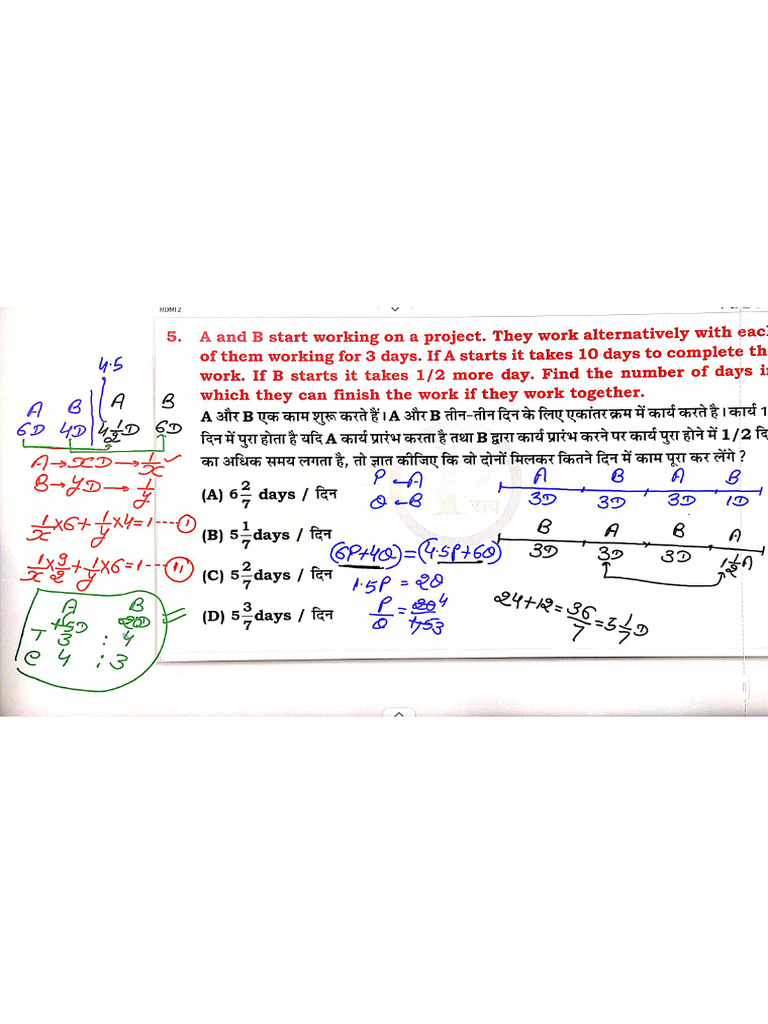 HDMI2
5. A and B start working on a project. They work alternatively with eac
of them working for 3 days. If A starts it takes 10 days to complete th
work. If B starts it takes 1/2 more day. Find the number of days i
which they can finish the work if they work together.
A और B एक काम शुरू करते हैं। A और B तीन-तीन दिन के लिए एकांतर क्रम में कार्य करते है। कार्य 1
दिन में पुरा होता है यदि A कार्य प्रारंभ करता है तथा B द्वारा कार्य प्रारंभ करने पर कार्य पुरा होने में 1/2 दि
का अधिक समय लगता है, तो ज्ञात कीजिए कि वो दोनों मिलकर कितने दिन में काम पूरा कर लेंगे ?
(A) 6 2/7 days / दिन
(B) 5 1/7 days / दिन
(C) 5 2/7 days / दिन
(D) 5 3/7 days / दिन
राव
4.5
A B A B
6D 4D 4 1/2 D 6D
A → xD → 1/x
B → yD → 1/y
1/x × 6 + 1/y × 4 = 1 ---- I
1/x × 9/2 + 1/y × 6 = 1 ---- II
A B
T 3 : 4
e 4 : 3
P ← A
Q ← B
(6P+4Q) = (4.5P+6Q)
1.5P = 2Q
A B A B
3D 3D 3D 1D
B A B A
3D 3D 3D 1 1/2 A
24+12 = 36/7 = 5 1/7 D